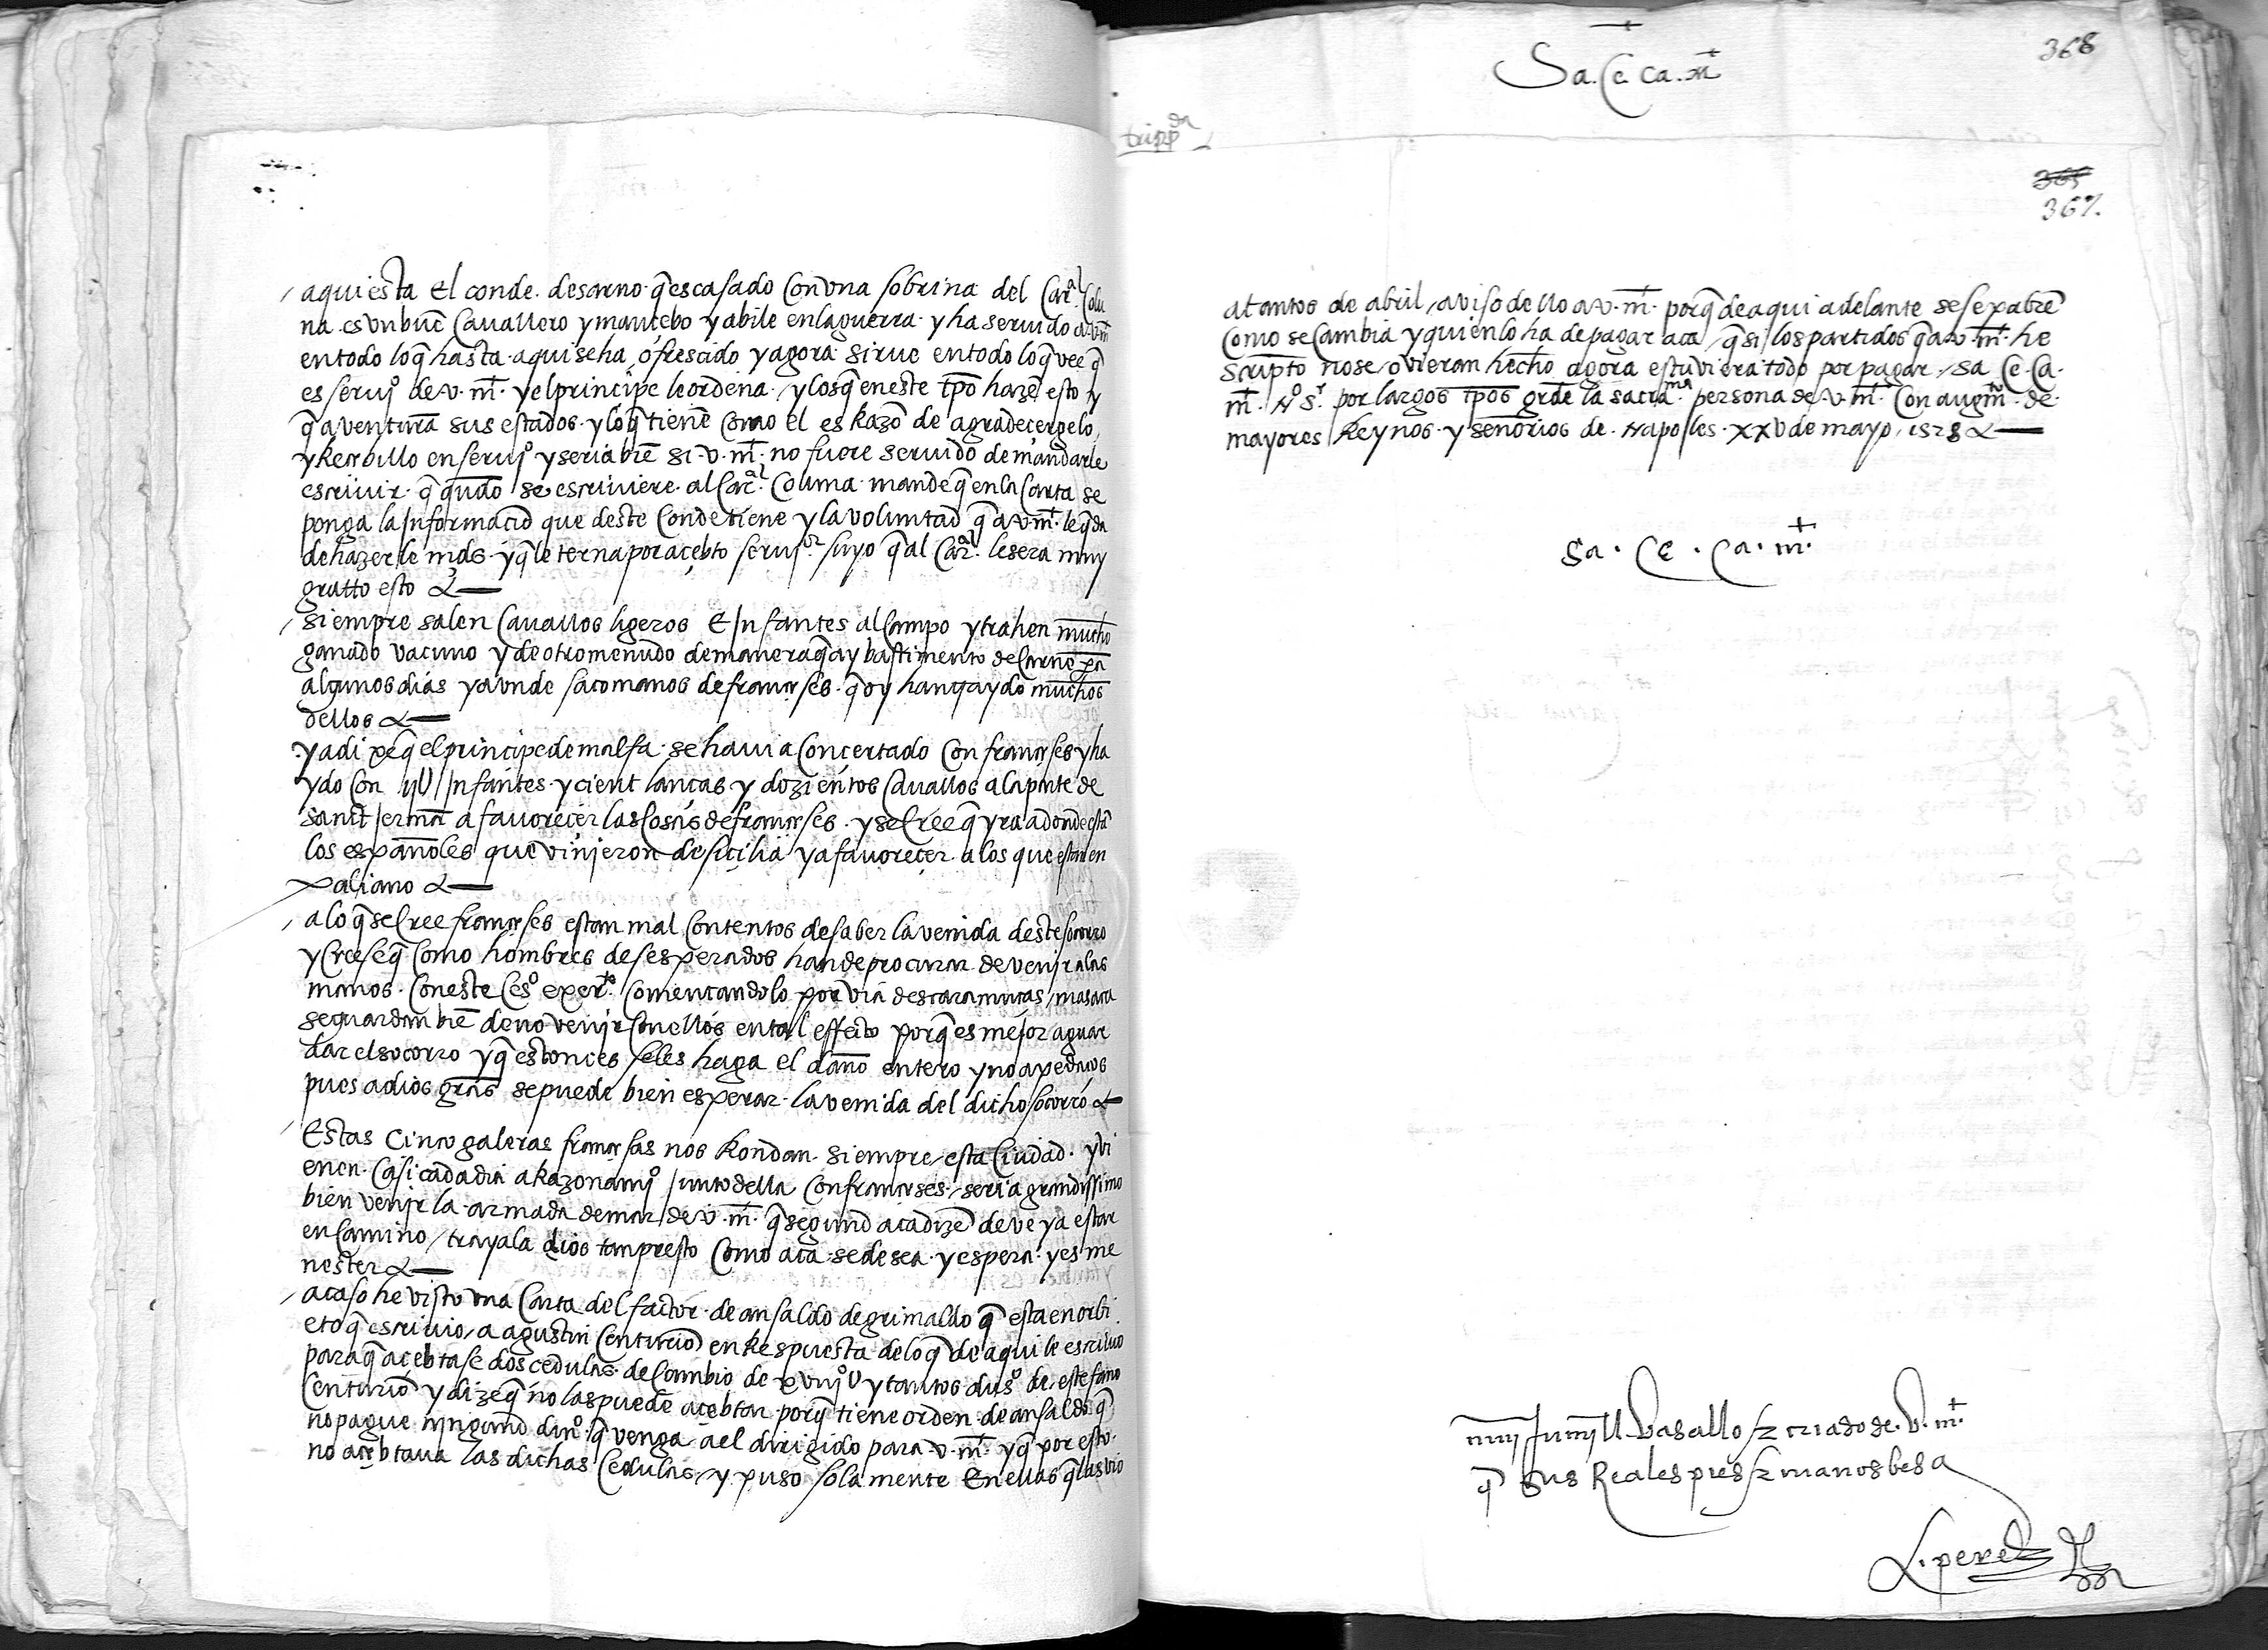 / aqui esta El conde. desarno. q̃ es casado Con vna sobrina del Car.al Colu
na. es vn buẽ Cavallero y mancebo y abile en la guerra. y ha seruido a v. mt
en todo lo q̃ hasta. aqui se ha ofrescido y agora. sirue en todo lo q̃ vee q̃
es serujo de. v. mt. y el principe le ordena. / y los q̃ en este tpõ hazẽ esto y
q̃ aventurã sus estados. y lo q̃ tienẽ Como el es Razõ de agradeçergelo
y Reçibillo en serujo y seria biẽ si. v. mt. no fuere seruido de mandarle
escriuir. q̃ quãdo se escriuiere. al Car.al Coluna. mande q̃ en la Carta se
ponga la Informaciõ que deste Conde tiene y la voluntad q̃ a v. mt. le q̃da
de hazerle mds. y q̃ le terna por açebto serujor suyo q̃ al Car.al le sera muy
gratto esto &—
/ siempre salen Cauallos ligeros E Infantes al Campo y trahen mucho
ganado vacuno y de otro menudo de manera q̃ ay bastimento de Carne pa
algunos dias y avn de sacomanos de françeses. q̃ oy han traydo muchos
dellos &—
ya dixe q̃ el principe de malfa. se hauia Conçertado Con françeses y ha
ydo Con ijU Infantes. y cient lanças y dozientos Cauallos a la parte de
sanct Jermã a favoreçer las Cosas de françeses. y se Cree q̃ yra a donde estã
los españoles que vinjeron de siçilia y a favoreçer. a los que estan en
paliano &—
/ a lo q̃ se Cree françeses estan mal Contentos de saber la venida deste socorro
y Creese q̃ Como hombres desesperados han de procurar. de venjr a las
manos. Con este Ceso exerto. Comencandolo por via descaramuças / mas aca
se guardan biẽ de no venjr Con ellos en tal effecto porq̃ es mejor aguar
dar el socorro y q̃ estonces se les haga el daño entero y no a pedaços
pues a dios grãs se puede bien esperar. la venida del dicho socorro &—
/ Estas Cinco galeras françesas nos Rondan. siempre / esta Ciudad. y vi
enen. Casi cada dia a Razonamjo Junto della Con françeses. / seria grandissimo
bien venjr la. armada de mar de v. mt. q̃ segund aca dizẽ deve ya estar
en Camino / trayala dios tan presto Como aca. se desea. y espera. y es me
nester &—
/ acaso he visto vna Carta del factor. de ansaldo de grimaldo q̃ esta en orbi
eto q̃ escriuio / a agustin Centuriõ en Respuesta de lo q̃ de aqui le escriuio
para q̃ acebtase dos cedulas. de Cambio de xviijoU y tantos duso de. estefano
Centuriõ y dize q̃ no las puede açebtar porq̃ tiene orden. de ansaldo q̃
no pague njngund dino. q̃ venga a el dirigido para v. mt. y q̃ por esto.
no acebtaua las dichas Cedulas / y puso sola mente En ellas q̃ las vio
Sa. Ce ca. mt
368
365
367.
at antos de abril / aviso dello a v. mt. porq̃ de aqui adelante se sepa biẽ
Como se Cambia y quien lo ha de pagar aca / q̃ si los partidos q̃ a v. mt. he
scripto no se ovieran hecho agora estuviera todo por pagar. / Sa Ce. Ca.
mt. No Sr. por largos tpõs grde la sacra. ma persona de v. mt. Con augmto. de.
mayores Reynos. y señorios de. Napoles. xxv de mayo. 1528 &—
Sa. Ce. Ca. mt.
muy humjll Vasallo & criado de. V. mt.
q̃ sus Reales pies & manos besa
L. perez